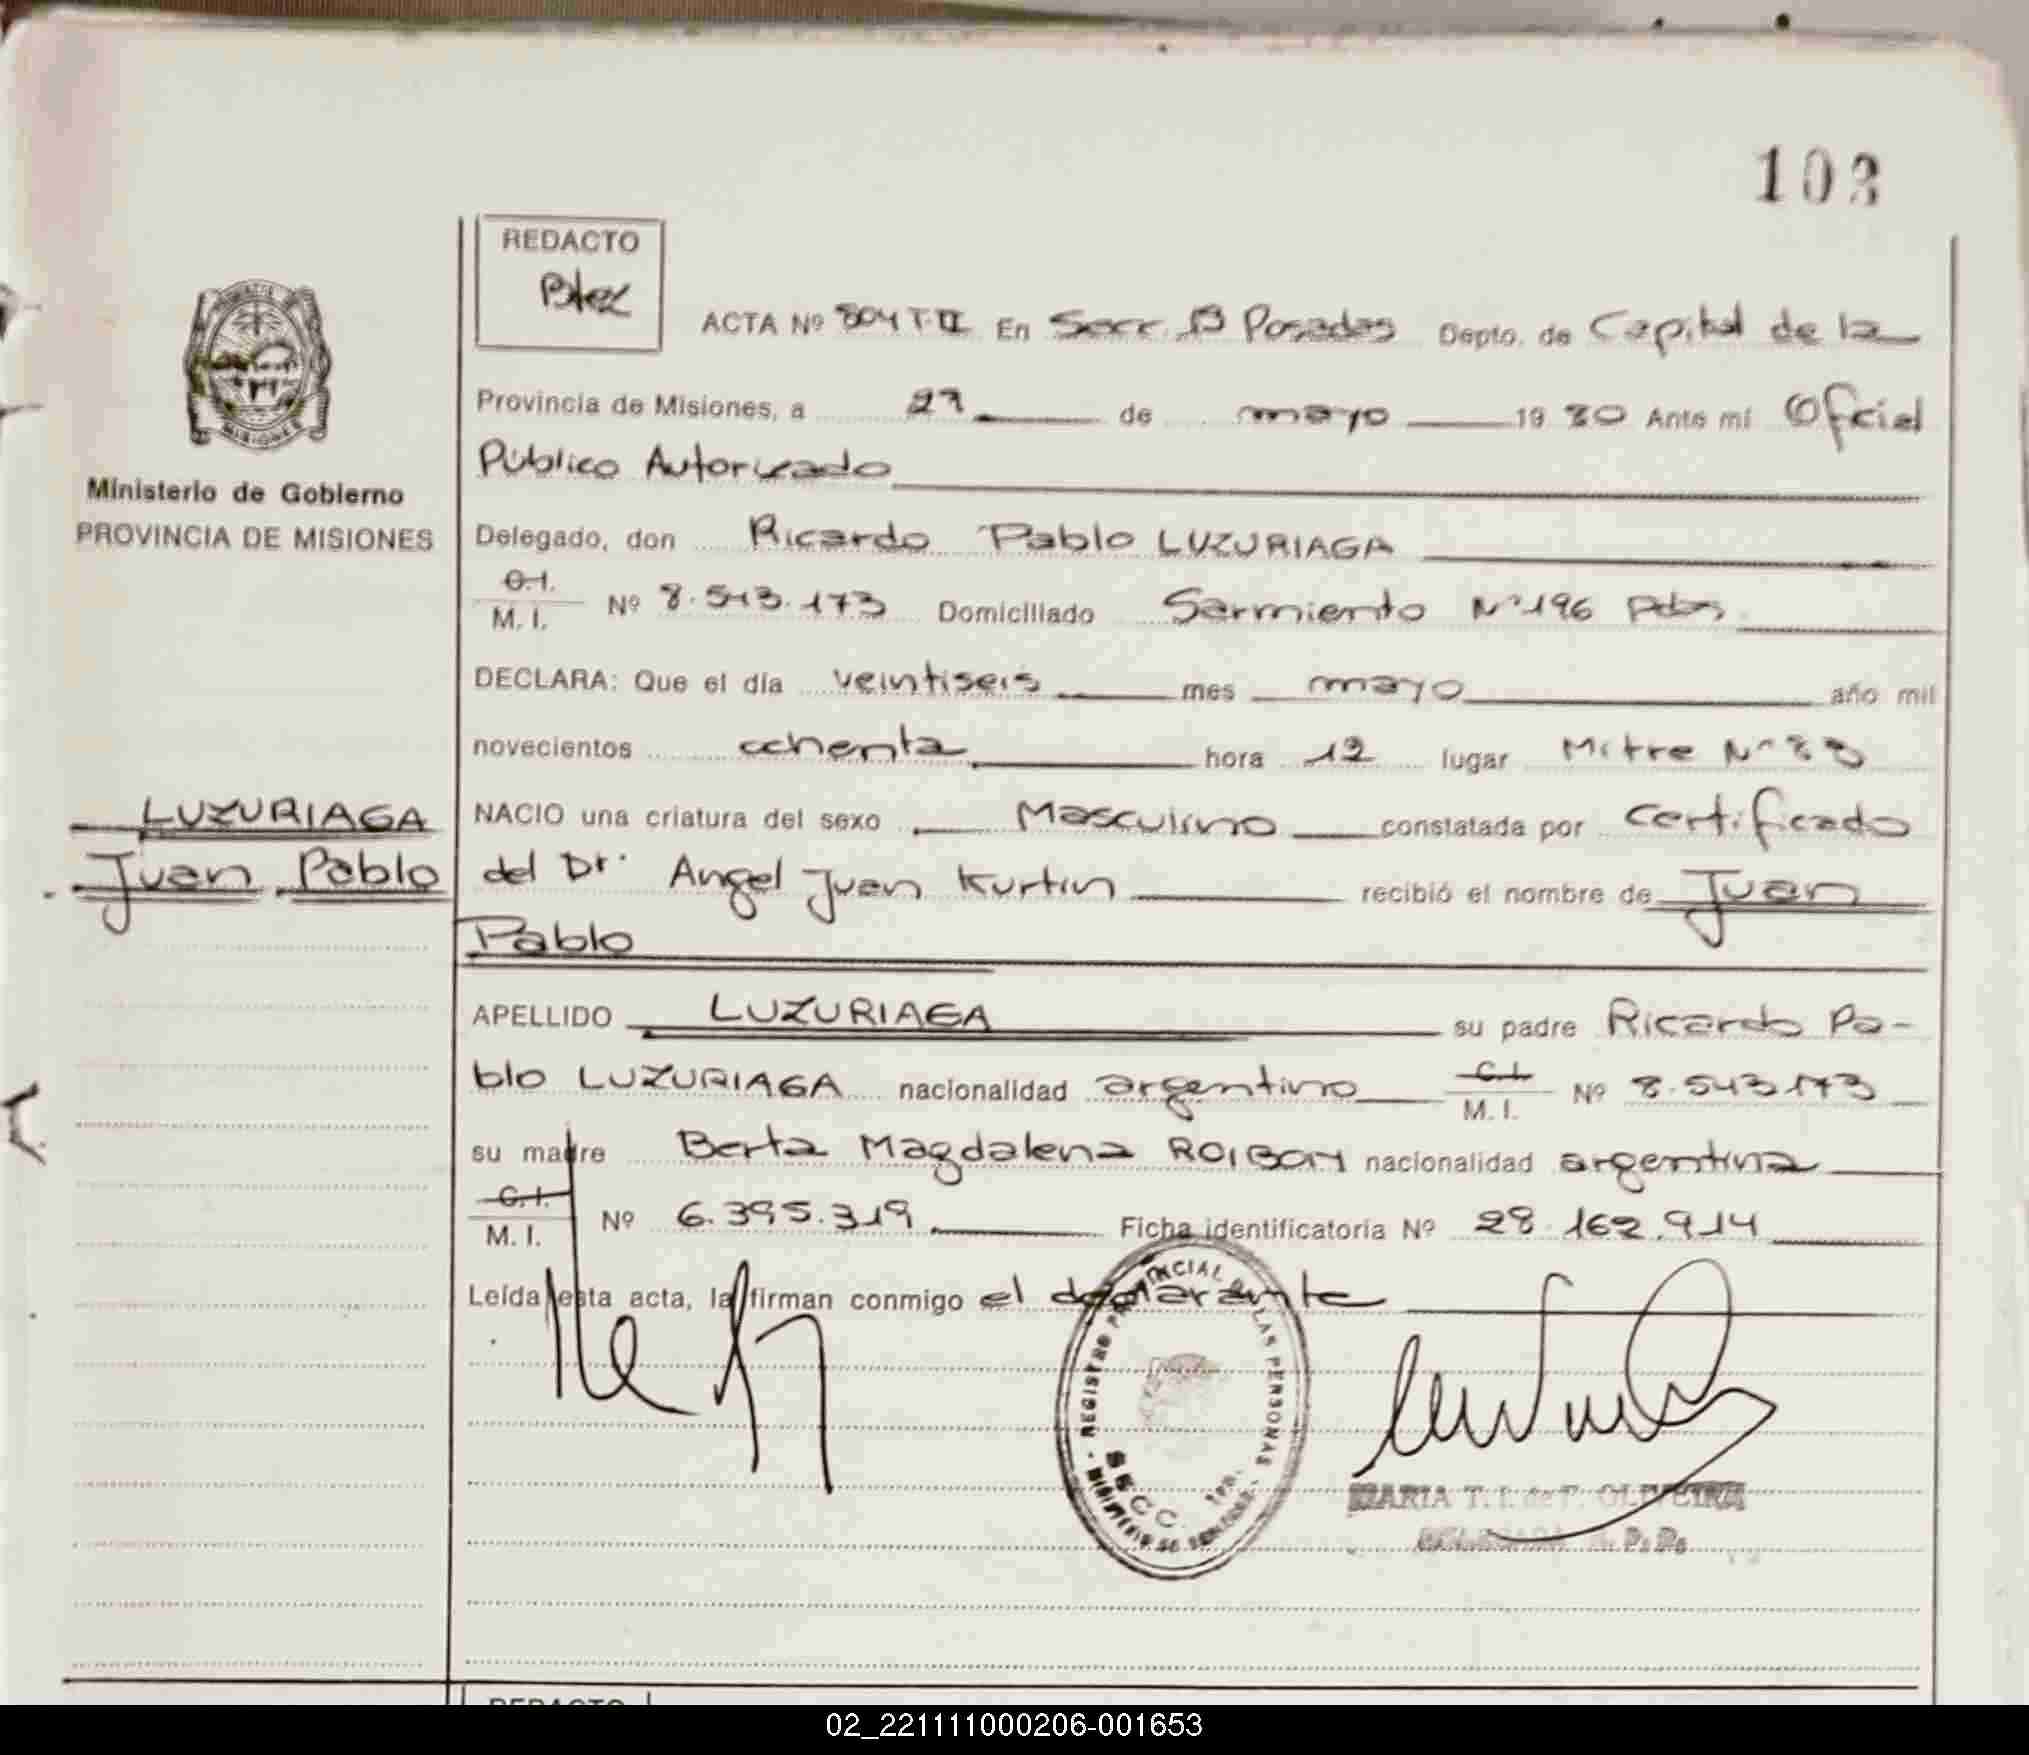 103
REDACTO
ACTA Nº 804 T.II En Secc. 1ª Posadas Depto. de Capital de la
Provincia de Misiones, a 27 de mayo 19 80 Ante mí Oficial
Público Autorizado
Ministerio de Gobierno
PROVINCIA DE MISIONES
Delegado, don Ricardo Pablo LUZURIAGA
C.I.
M. I. Nº 8.543.173 Domiciliado Sarmiento Nº 196 Pdas
DECLARA: Que el día veintiseis mes mayo año mil
novecientos ochenta hora 12 lugar Mitre Nº
LUZURIAGA
Juan Pablo
NACIO una criatura del sexo Masculino constatada por Certificado
del Dr. Angel Juan Kurtin recibió el nombre de Juan
Pablo
APELLIDO LUZURIAGA su padre Ricardo Pa-
blo LUZURIAGA nacionalidad argentino C.I. M. I. Nº 8.543.173
su madre Berta Magdalena ROIBON nacionalidad argentina
C.I.
M. I. Nº 6.395.319. Ficha identificatoria Nº 28.162.914
Leída esta acta, la firman conmigo el declarante
REGISTRO PROVINCIAL DE LAS PERSONAS
SECC. 1ra.
MARIA T. I. de F. OLIVEIRA
REDACTO
02_221111000206-001653